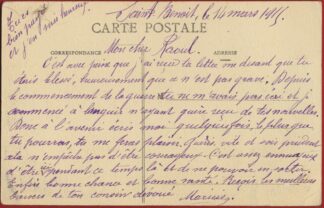 Saint Benoit, le 14 mars 1915.
CARTE POSTALE
CORRESPONDANCE
ADRESSE
Mon cher Raoul.
C'est avec joie que j'ai reçu ta lettre me disant que tu
étais blessé, heureusement que ce n'est pas grave. Depuis
le commencement de la guerre tu ne m'avais pas écrit et je
commencé à languir n'ayant quère reçu de tes nouvelles.
Donc à l'avenir écris moi quelquefois, le plus que
tu pourras, tu me feras plaisir. Guéris vite et sois prudent
cela n'empêche pas d'être courageux. C'est assez ennuyeux
d'être pendant ce temps là et de ne pouvoir en sortir.
Enfin bonne chance et bonne santé. Reçois les meilleurs
baisers de ton cousin dévoué